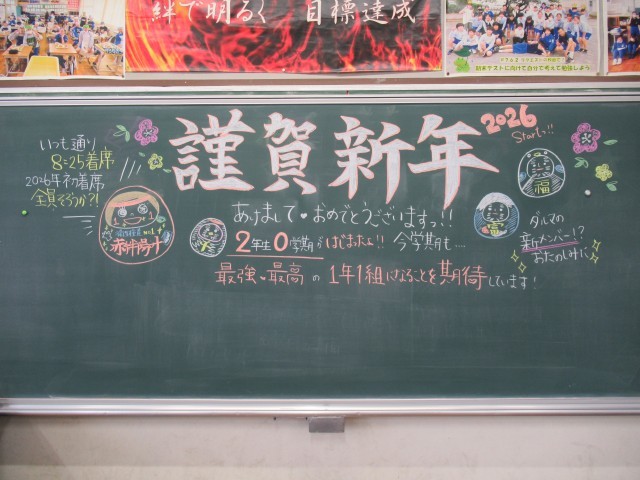 絆で明るく 目標達成
謹賀新年
2026
Startっ!!
いつも通り
8:25着席
2026年初着席
全員そろうか?!
あけまして♥おめでとうございますっ!!
2年生0学期がはじまったよ!! 今学期も...
最強・最高の1年1組になることを期待しています!
福
富
ダルマの
新メンバー!?
おたのしみに